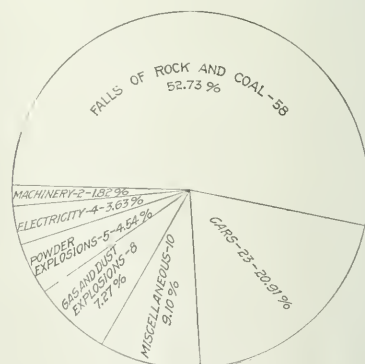 FALLS OF ROCK AND COAL-58
52.73 %
MACHINERY-2-1.82 %
ELECTRICITY-4-3.63 %
POWDER
EXPLOSIONS-5-4.54 %
GAS AND DUST
EXPLOSIONS-8
7.27 %
MISCELLANEOUS-10
9.10 %
CARS-23-20.91 %